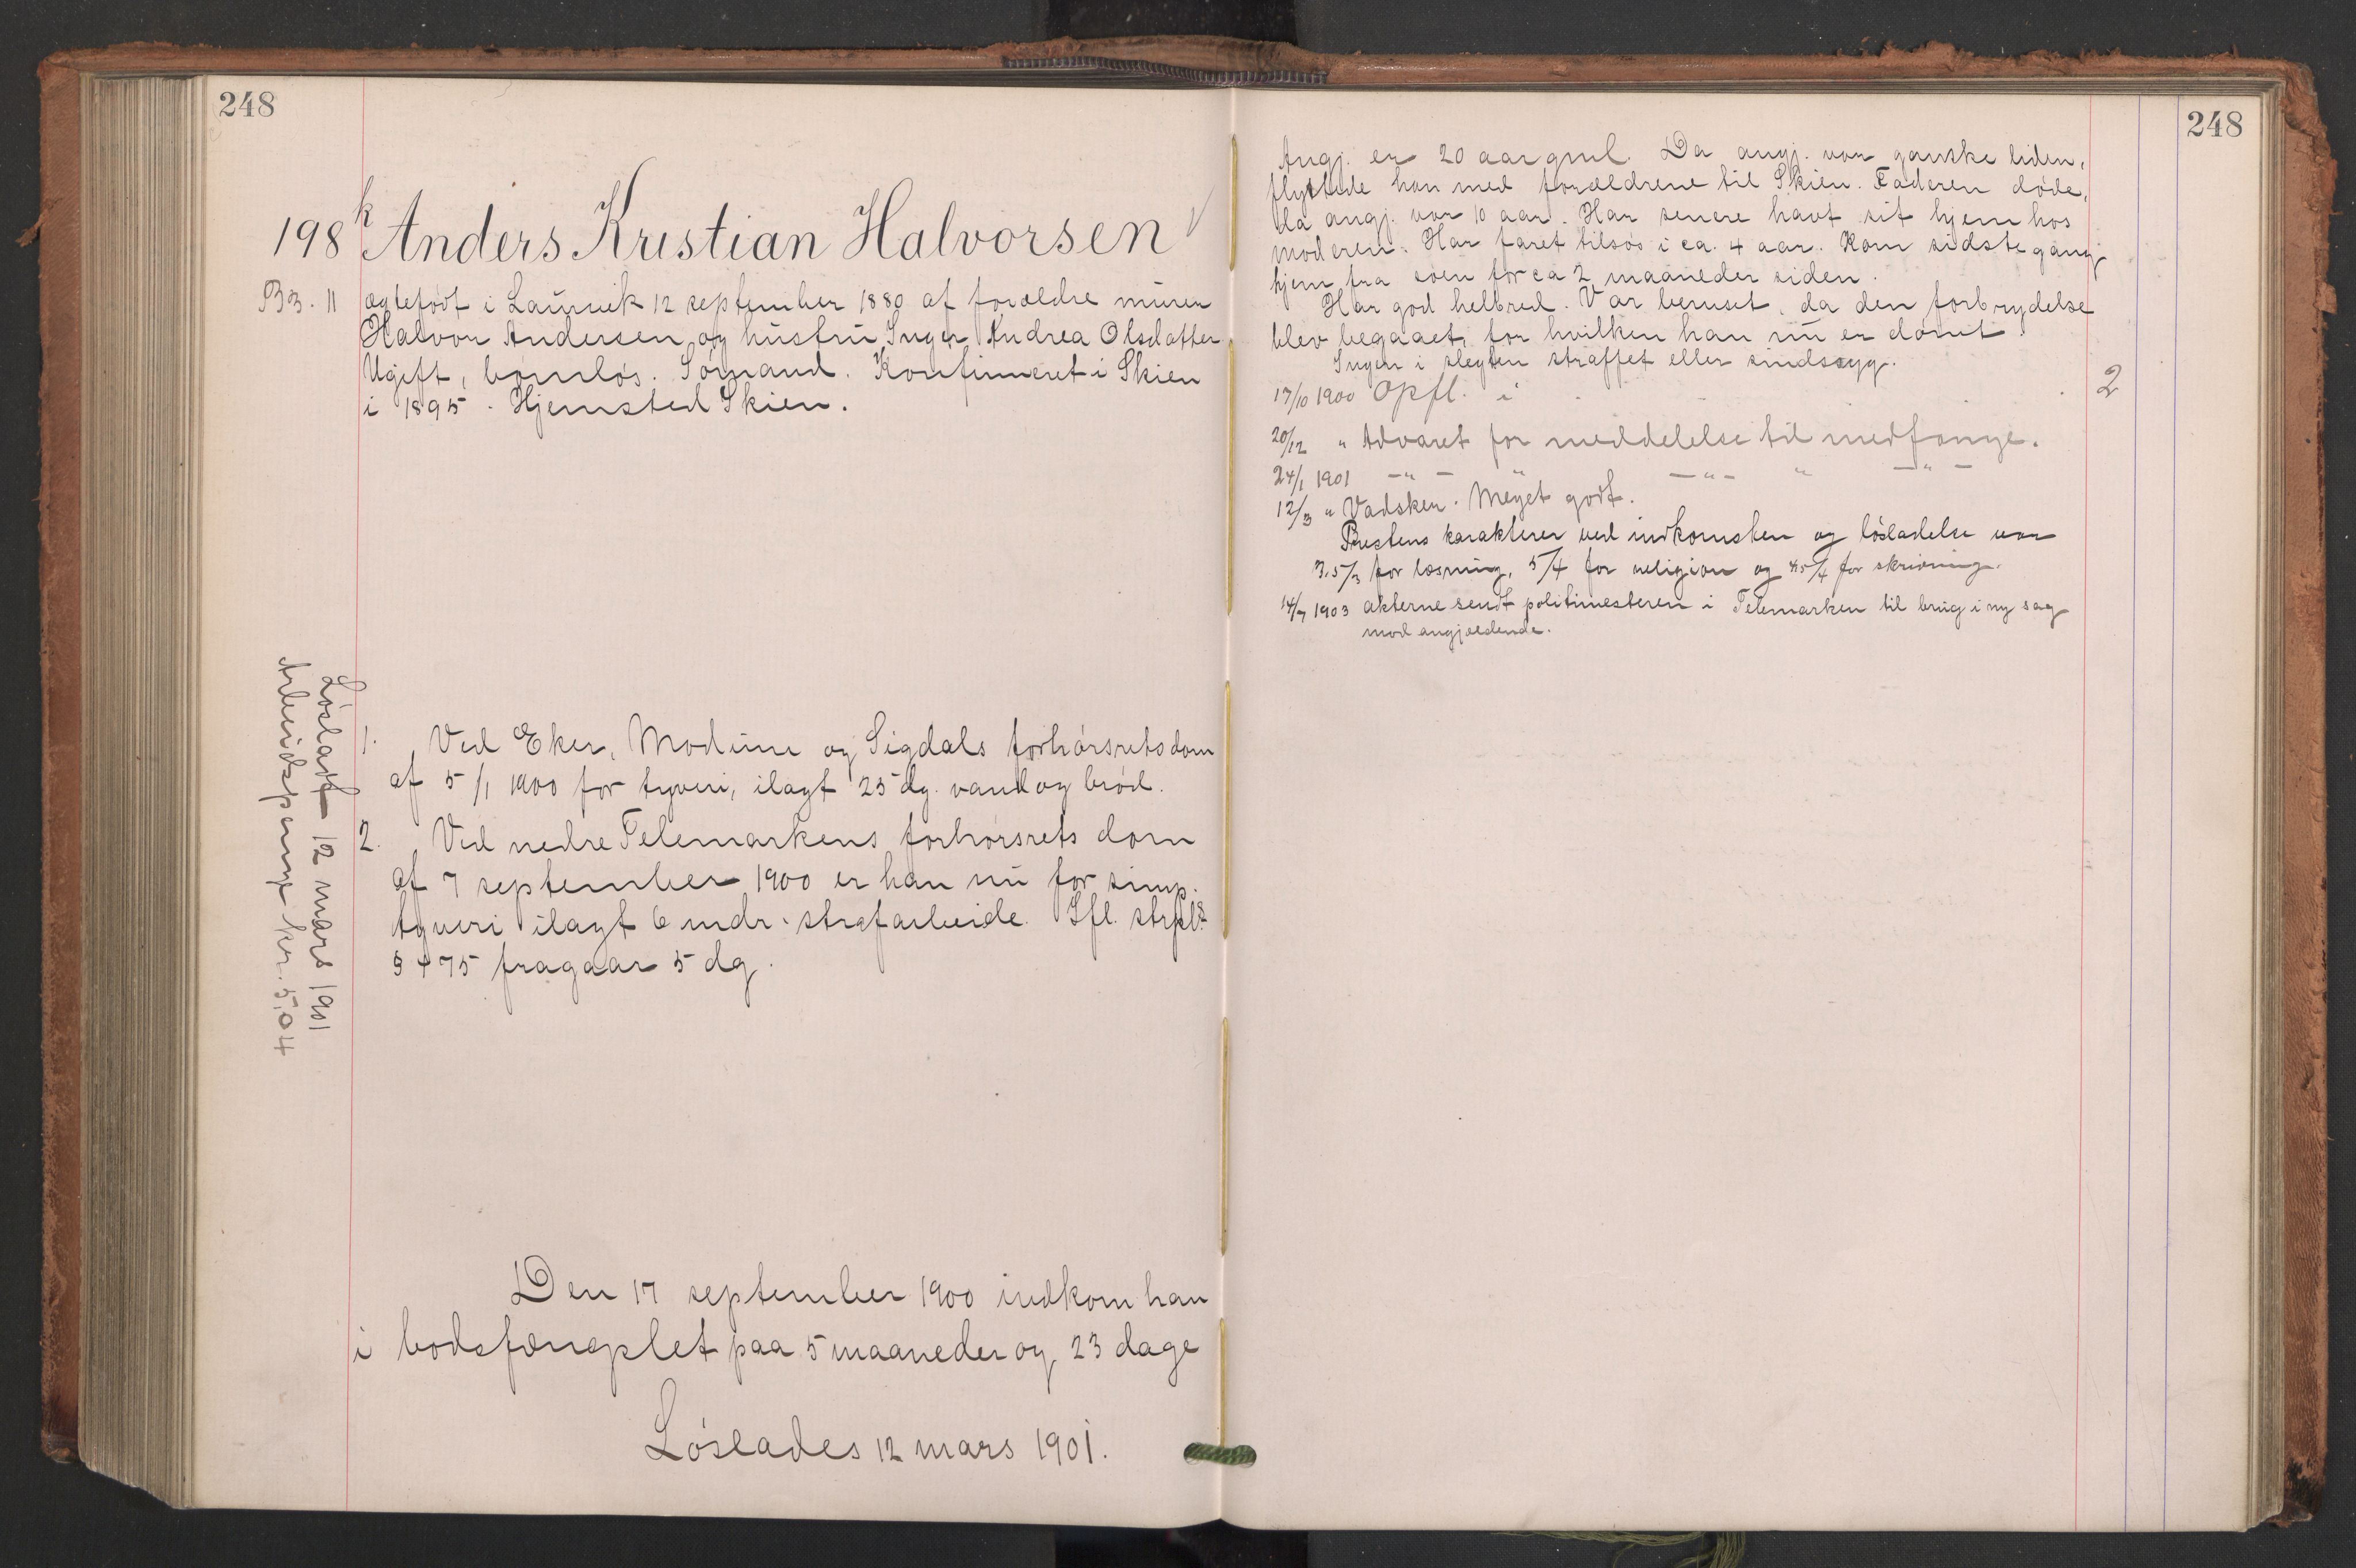 248
198 k Anders Kristian Halvorsen
B3. 11 ægtefødt i Laurvik 12 september 1880 af forældre murer
Halvor Andersen og hustru Inger Andrea Olsdatter.
Ugift, barnløs. Sømand. Konfirmeret i Skien
i 1895. Hjemsted Skien.
1. Ved Eker, Modum og Sigdals forhørsretsdom
af 5/1 1900 for tyveri, ilagt 25 dg. vand og brød.
2. Ved nedre Telemarkens forhørsrets dom
af 7 september 1900 er han nu for simp.
tyveri ilagt 6 mdr. strafarbeide. Ifl. strpl.
§ 475 fragaar 5 dg.
Løsladt 12 mars 1901
Arbeidspenge kr. 5,04
Den 17 september 1900 indkom han
i bodsfængslet paa 5 maaneder og 23 dage
Løslades 12 mars 1901.
248
Angj. er 20 aar gml. Da angj. var ganske liden,
flyttede han med forældrene til Skien. Faderen døde,
da angj. var 10 aar. Har senere havt sit hjem hos
moderen. Har faret tilsøs i ca. 4 aar. Kom sidste gang
hjem fra søen for ca 2 maaneder siden.
Har god helbred. Var beruset, da den forbrydelse
blev begaaet, for hvilken han nu er dømt.
Ingen i slegten straffet eller sindssyg.
17/10 1900 Opfl. i 2
20/12 " Advaret for meddelelse til medfange.
24/1 1901 -"- " -"- " -"-
12/3 " Vadsken. Meget godt.
Prestens karakterer ved indkomsten og løsladelse var
3,5/3 for læsning, 5/4 for religion og 4,5/4 for skrivning.
14/7 1903 akterne sendt politimesteren i Telemarken til brug i ny sag
mod angjældende.